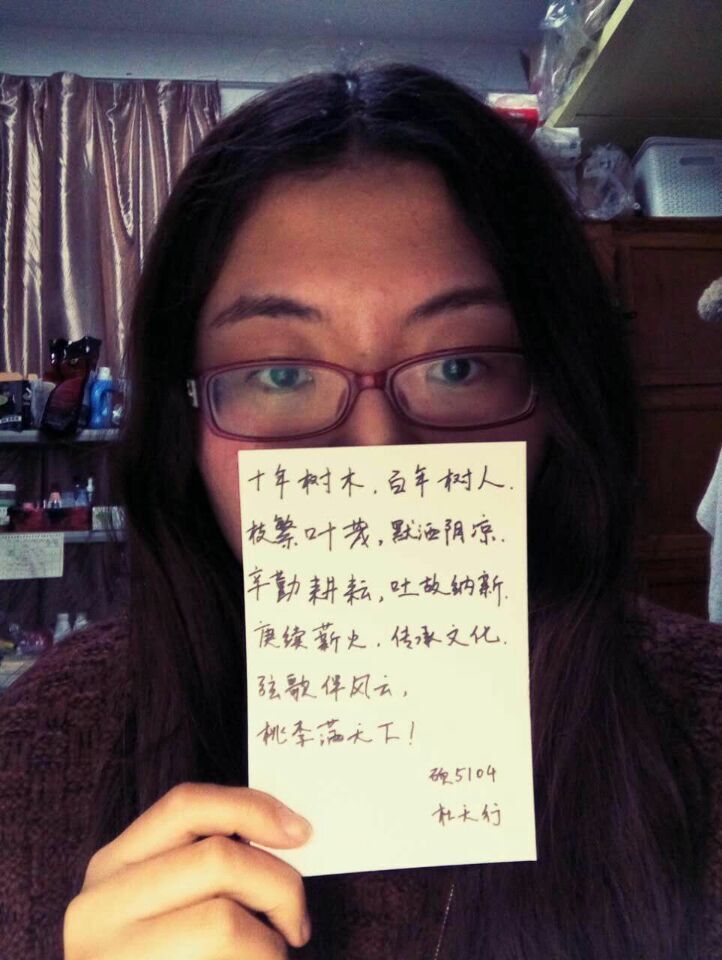 十年树木，百年树人．
枝繁叶茂，默洒阴凉．
辛勤耕耘，吐故纳新．
赓续薪火，传承文化．
弦歌伴风云，
桃李满天下！
硕5104
杜天行